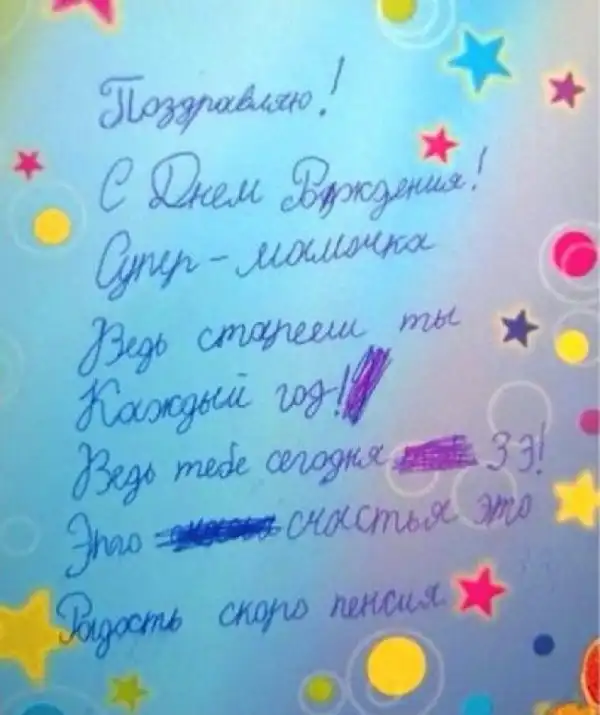 Поздравляю!
С Днем Рождения!
Супер - мамочка
Ведь старееш ты
Каждый год!
Ведь тебе сегодня 39!
Это счастья это
Радость скоро пенсия